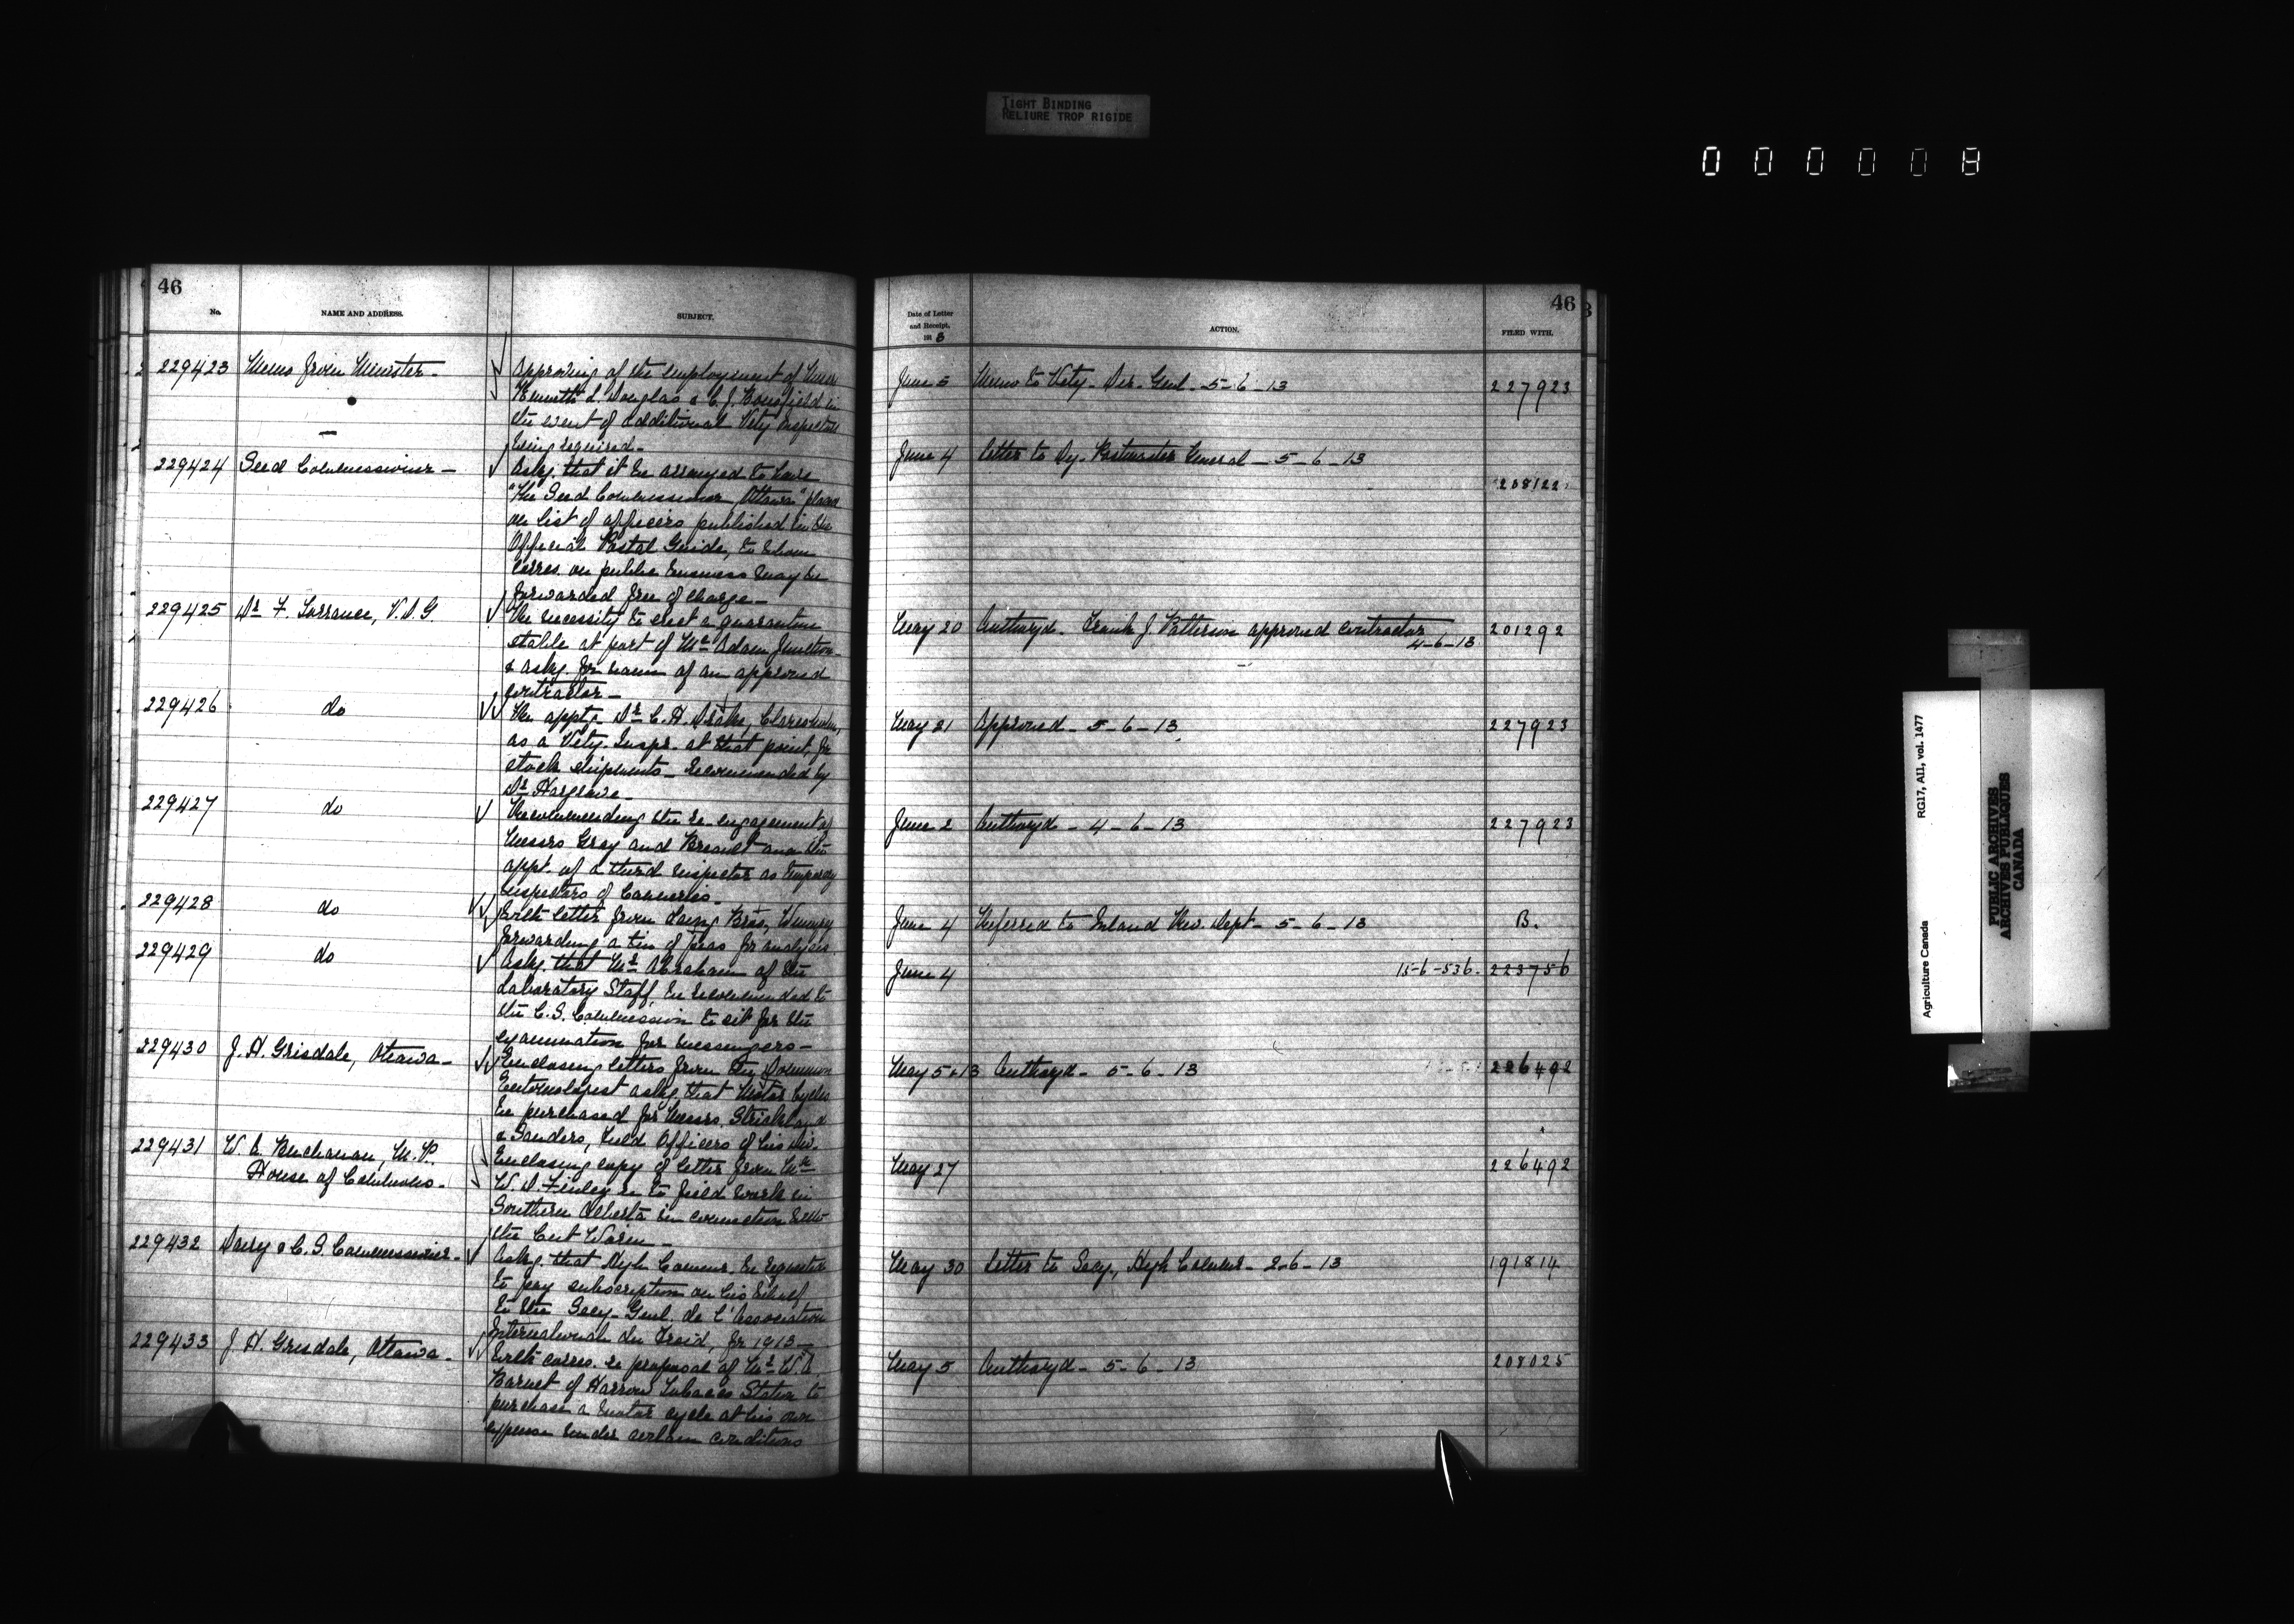 TIGHT BINDING
RELIURE TROP RIGIDE
0 0 0 0 0 8
46
No. NAME AND ADDRESS. SUBJECT.
229423 Memo from Minister - Approving of the employment of Messrs
Kenneth L. Douglas & C. J. Bousfield in
the event of additional Vety Inspectors
being required -
229424 Seed Commissioner - Askg. that it be arranged to have
"The Seed Commissioner, Ottawa" placed
on list of officers published in the
Official Postal Guide, to whom
corres. on public business may be
forwarded free of charge -
229425 Dr. F. Torrance, V.D.G The necessity to erect a quarantine
stable at port of McAdam Junction
& askg. for name of an approved
contractor -
229426 do The appt. Dr. C. H. Drake, Claresholm,
as a Vety. Inspr. at that point, for
stock shipments - recommended by
Dr. Hargrave -
229427 do Recommending the re-engagement of
Messrs Gray and Breault and the
appt. of a third inspector as temporary
inspectors of Canneries -
229428 do With letter from Laing Bros, Winnipeg
forwarding a tin of peas for analysis
229429 do Askg. that Mr. Abraham of the
Laboratory Staff, be recommended to
the C. S. Commission to sit for the
examination for messengers -
229430 J. H. Grisdale, Ottawa - Enclosing letters from the Dominion
Entomologist askg. that Motor Cycles
be purchased for Messrs. Strickland
& Sanders, Field Officers of his div.
229431 W. A. Buchanan, M.P. Enclosing copy of letter from Mr.
House of Commons - W. D. Finley re to field work in
Southern Alberta in connection with
the Cut Worm -
229432 Dairy & C. S. Commissioner - Askg. that High Commr. be requested
to pay subscription on his behalf
to the Secy. Genl. de l'Association
Internationale du Froid, for 1913 -
229433 J. H. Grisdale, Ottawa - With corres. re proposal of Mr. W. A.
Barnet of Harrow Tobacco Station to
purchase a motor cycle at his own
expense under certain conditions
46
Date of Letter
and Receipt,
191 3 ACTION. FILED WITH.
June 5 Memo to Vety. Dir. Genl. 5-6-13 227923
June 4 Letter to Dy. Postmaster General - 5-6-13
208122
May 20 Authoryd. Frank J. Patterson approved contractor 201292
4-6-13
May 21 Approved - 5-6-13 227923
June 2 Authoryd - 4-6-13 227923
June 4 Referred to Inland Rev. Dept - 5-6-13 B.
June 4 15-6-536. 223756
May 5 & 13 Authoryd - 5-6-13 226492
May 27 226492
May 30 Letter to Secy, High Commr. - 2-6-13 191814
May 5 Authoryd - 5-6-13 208025
RG17, AII, vol. 1477
Agriculture Canada
PUBLIC ARCHIVES
ARCHIVES PUBLIQUES
CANADA